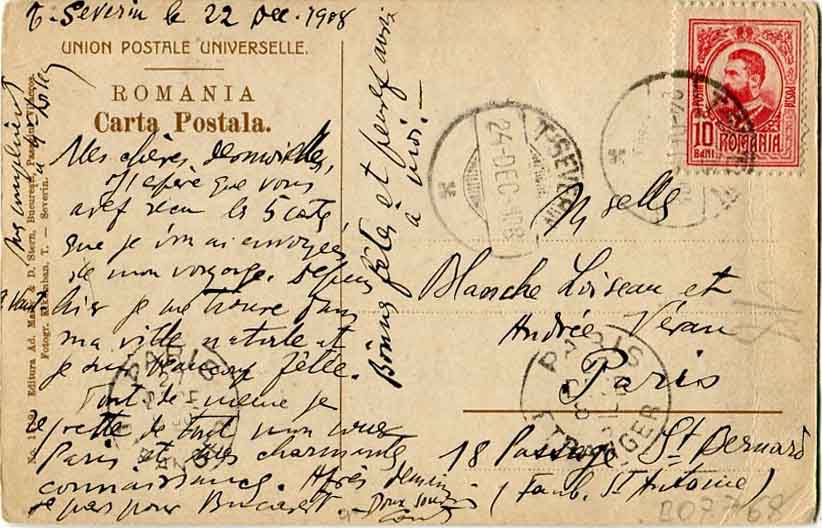 T-Severin le 22 Dec. 1908
UNION POSTALE UNIVERSELLE.
ROMANIA
Carta Postala.
Mes chères demoiselles,
J'espère que vous
avez reçu les 5 cartes
que je vous ai envoyées
de mon voyage. Depuis
hier je me trouve dans
ma ville natale et
je suis beaucoup fêté.
Tout de même je
regrette de tout mon cœur
Paris et ses charmantes
connaissances. Après demain
je pars pour Bucarest
Doux
Bonnes fêtes et pensez aussi
à moi.
Mselles
Blanche Loiseau et
Andrée Véran
Paris
18 Passage St Bernard
(Faub. St Antoine)
T-SEVERIN
24-DEC 908
T-SEVERIN
24
POSTA
10 BANI
ROMANIA
PARIS
ETRANGER
PARIS
Editura Ad. & D. Stern, Bucuresti,
Fotogr. T.-Severin.